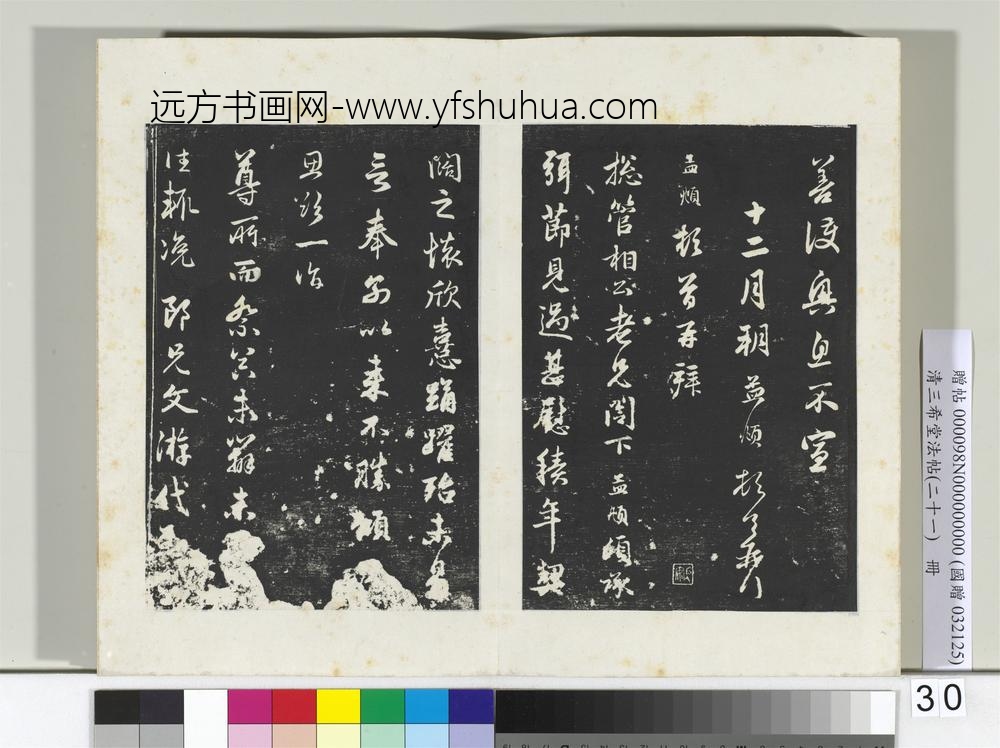 远方书画网-www.yfshuhua.com
善護興息不宣
十二月朔 益頓首再行
孟頫 頓首再拜
總管相公老兄閣下 孟頫頃承
弭節見過甚慰積年契
闊之懷欣憙踊躍殆未易
言奉別以來不勝傾
思欲一詣
尊所而祭冗未辦未
佳眠况 郎兄文遊代
贈帖 000098N000000000 (國贈 032125)
清三希堂法帖(二十一) 冊
30